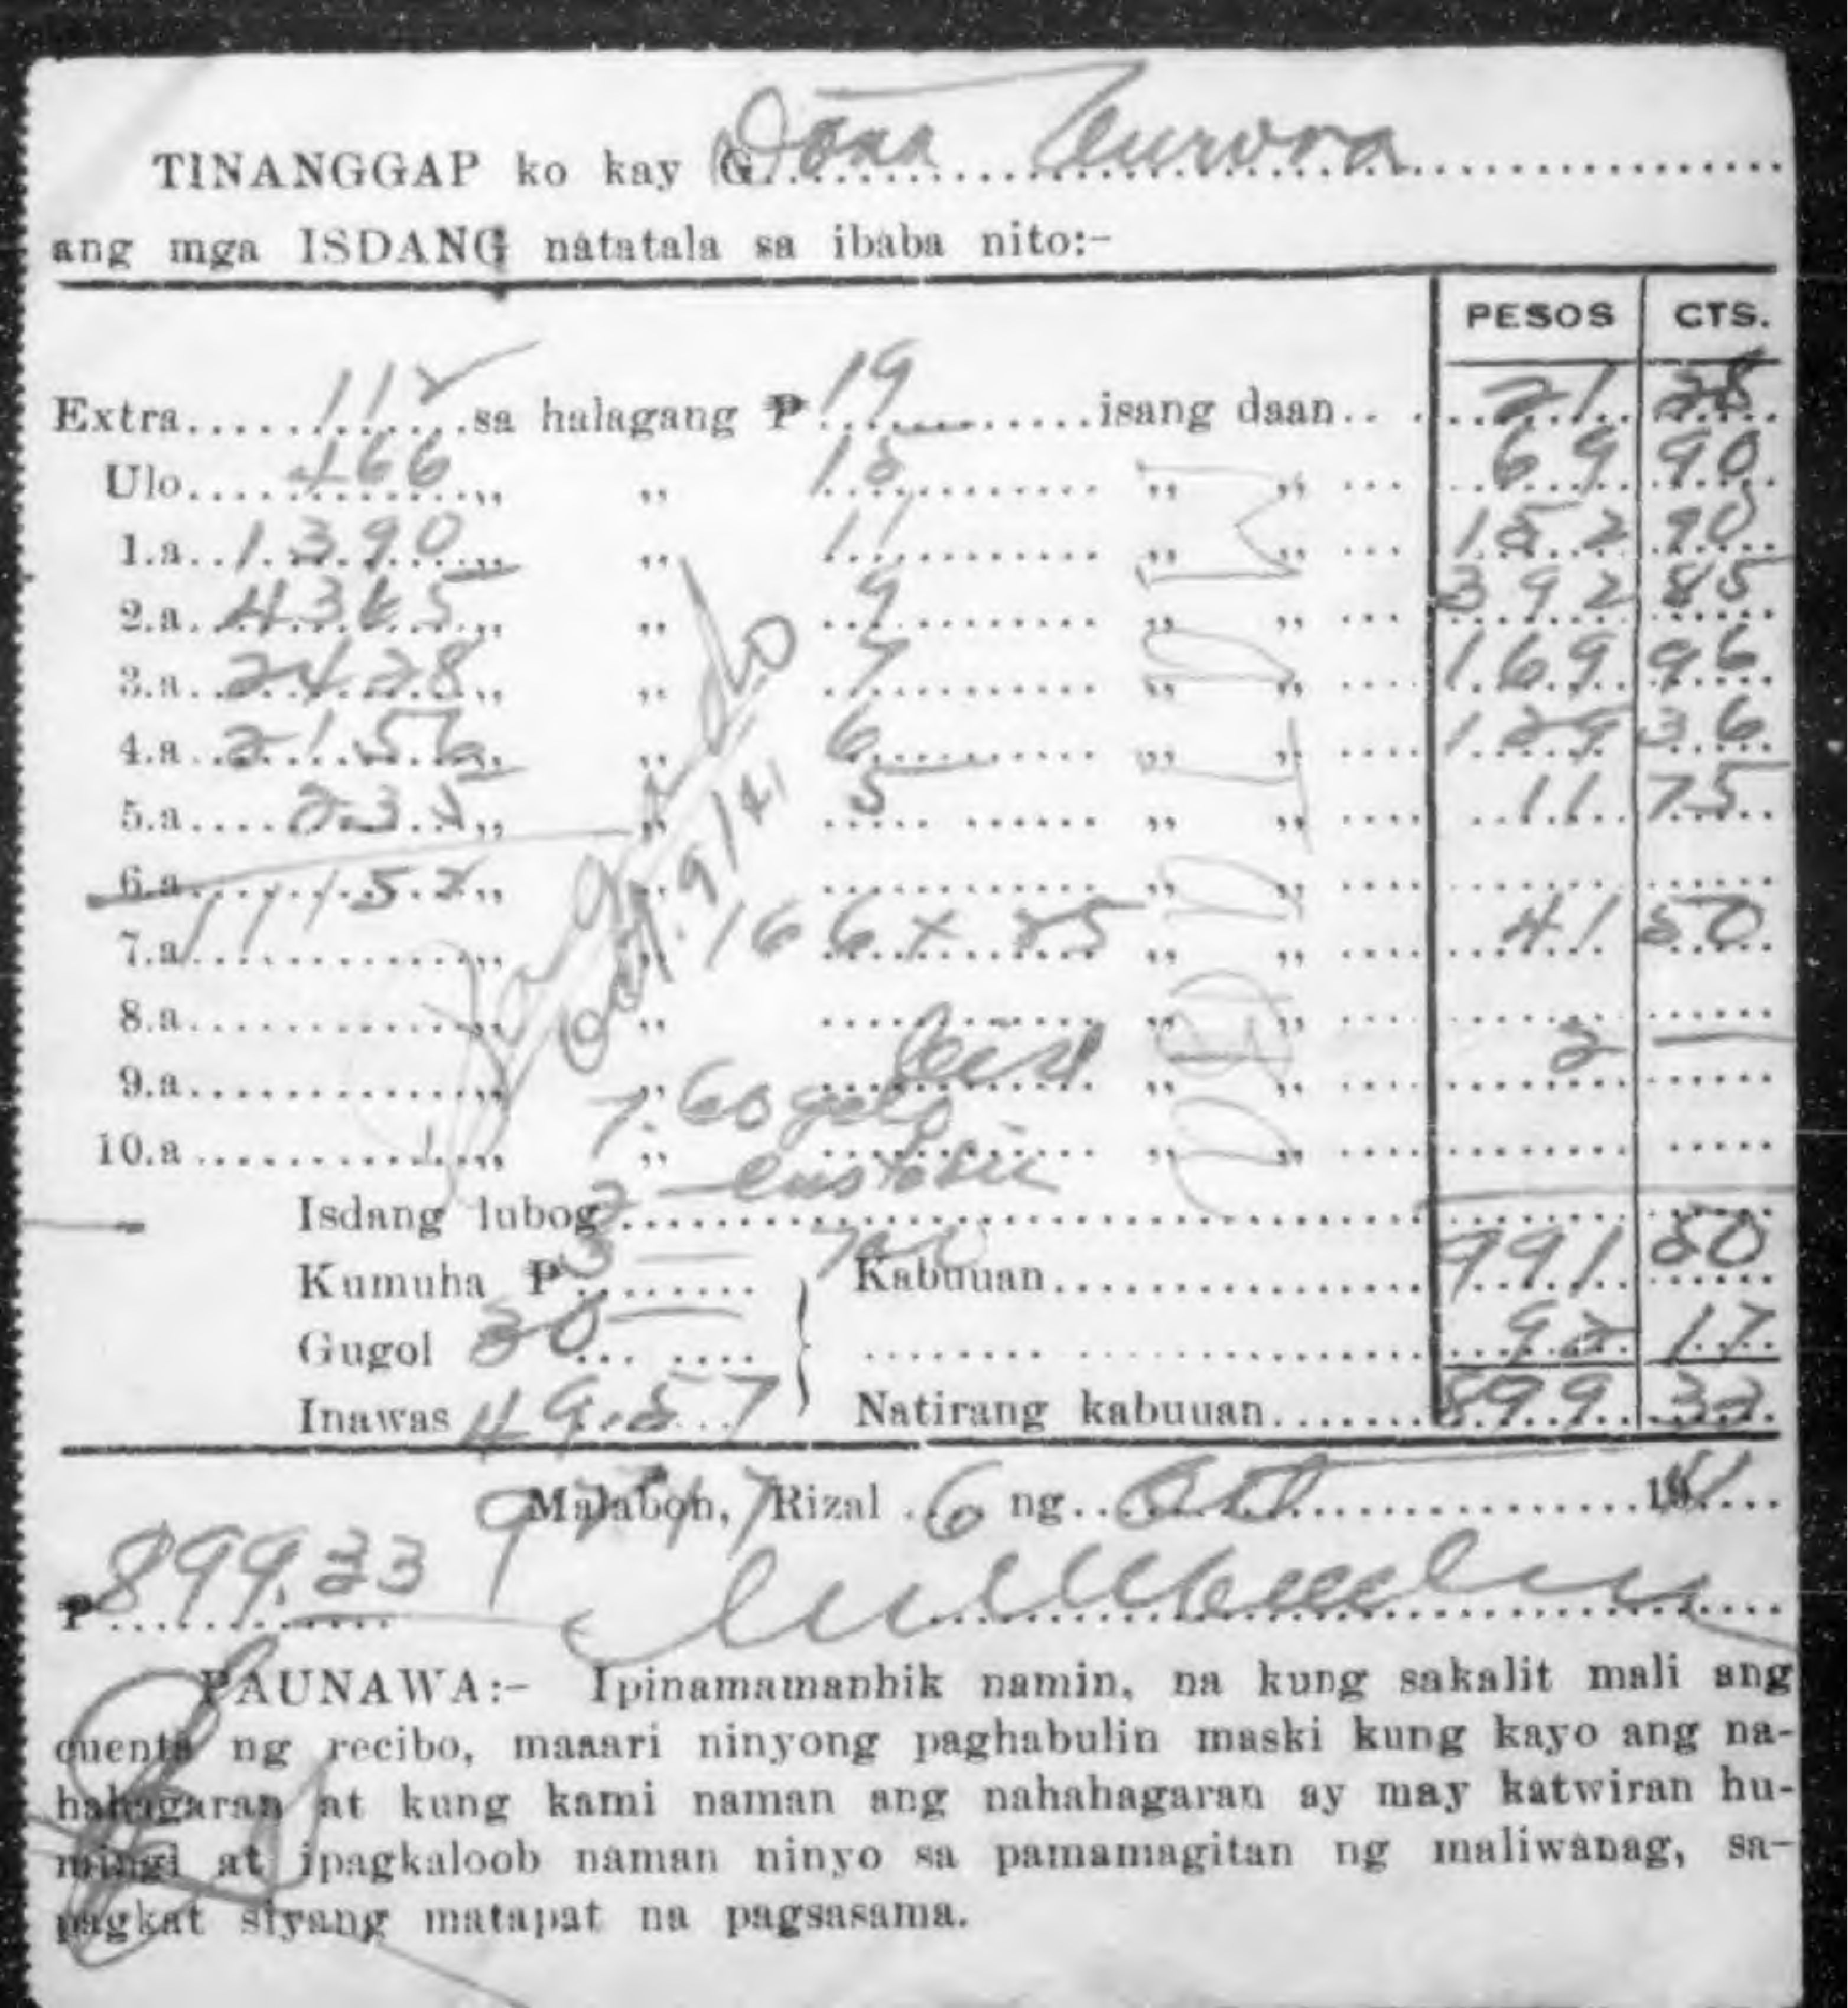 TINANGGAP ko kay G. Dona Aurora
ang mga ISDANG natatala sa ibaba nito:-
PESOS CTS.
Extra 112 sa halagang ₱ 19 isang daan 21 28
Ulo 466 „ „ 15 „ „ 69 90
1.a 1390 „ „ 11 „ „ 152 90
2.a 4365 „ „ 9 „ „ 392 85
3.a 2428 „ „ 7 „ „ 169 96
4.a 2156 „ „ 6 „ „ 129 36
5.a 235 „ „ 5 „ „ 11 75
6.a 11152 „ „ „ „
7.a „ „ 166 x 25 „ „ 41 50
8.a „ „ „ „
9.a „ „ „ „ 2 —
10.a „ „ 7.60 yelo „ „
Pagado
Oct. 9/41
Isdang lubog 2 —
Kumuha ₱ 3 — Kabuuan 991 50
Gugol 30 — 92 17
Inawas 49.57 Natirang kabuuan 899 33
92.17
Malabon, Rizal 6 ng Oct 1941
₱ 899.33
PAUNAWA:- Ipinamamanhik namin, na kung sakalit mali ang
cuenta ng recibo, maaari ninyong paghabulin maski kung kayo ang na-
hahagaran at kung kami naman ang nahahagaran ay may katwiran hu-
mingi at ipagkaloob naman ninyo sa pamamagitan ng maliwanag, sa-
pagkat siyang matapat na pagsasama.